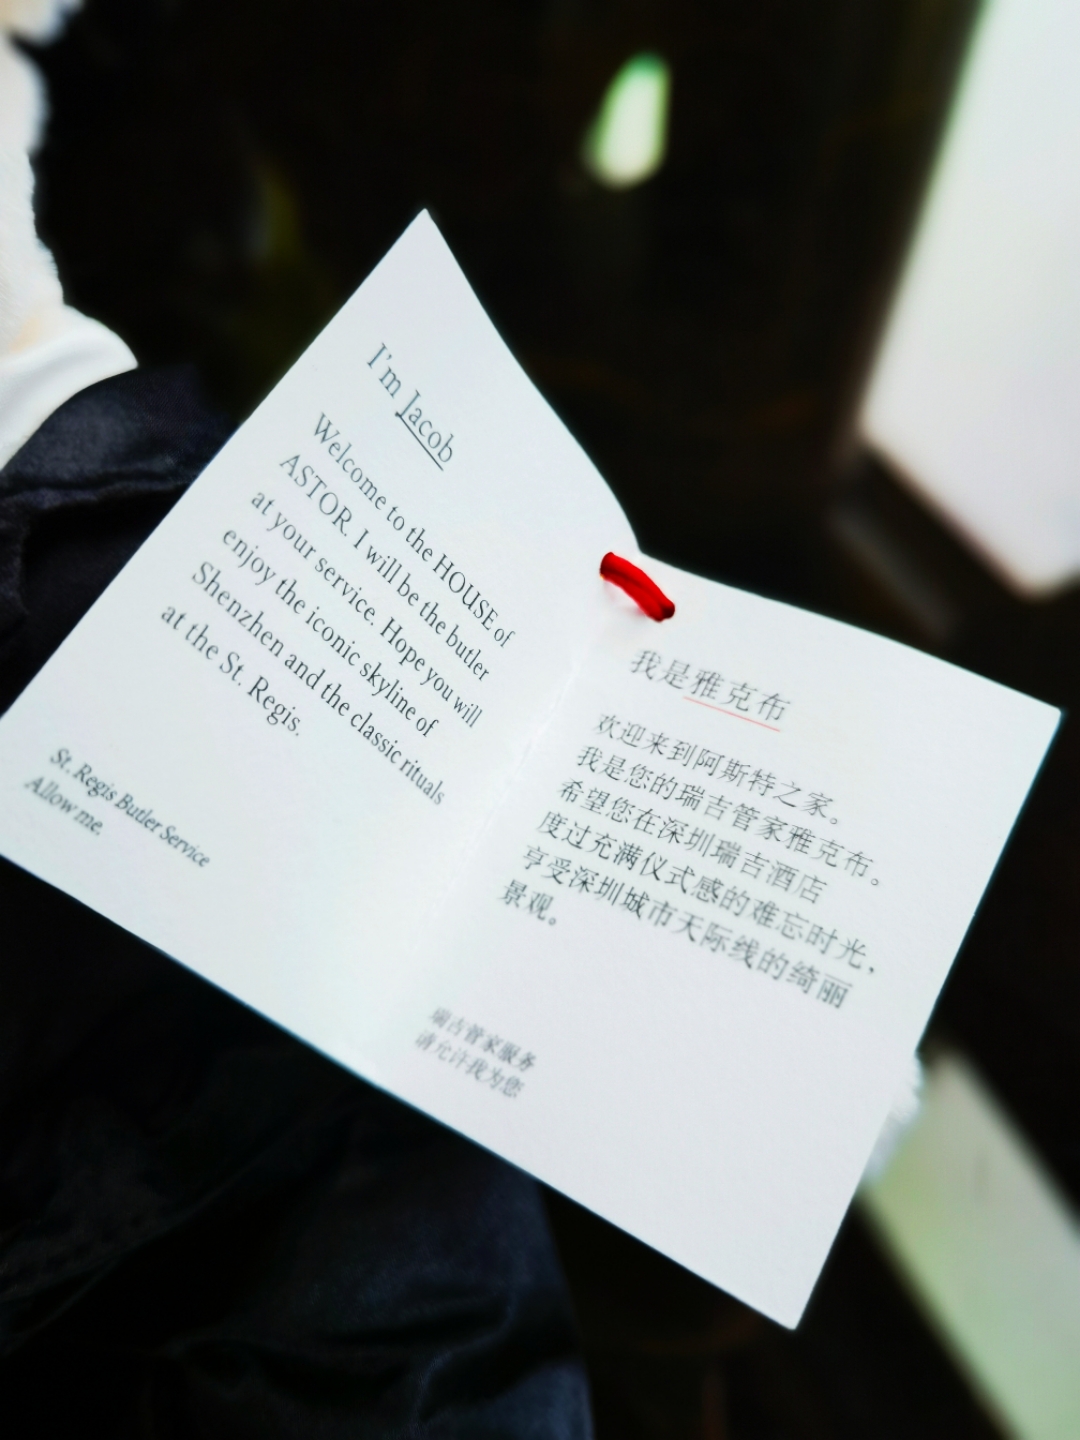 I'm Jacob
Welcome to the HOUSE of
ASTOR. I will be the butler
at your service. Hope you will
enjoy the iconic skyline of
Shenzhen and the classic rituals
at the St. Regis.
St. Regis Butler Service
Allow me.
我是雅克布
欢迎来到阿斯特之家。
我是您的瑞吉管家雅克布。
希望您在深圳瑞吉酒店
度过充满仪式感的难忘时光，
享受深圳城市天际线的绮丽
景观。
瑞吉管家服务
请允许我为您